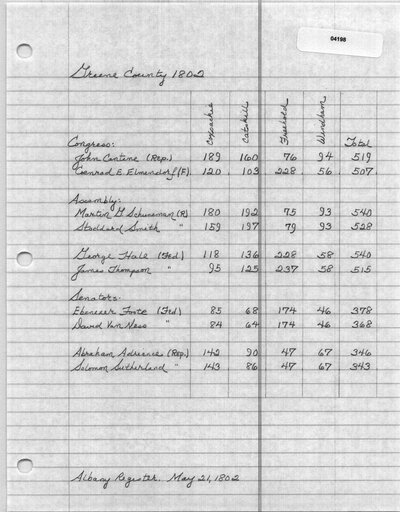 04198
Greene County 1802
Coxsackie Catskill Freehold Windham Total
Congress:
John Cantine (Rep.) 189 160 76 94 519
Conrad E. Elmendorf (F) 120 103 228 56 507
Assembly:
Martin G Schuneman (R) 180 192 75 93 540
Stoddard Smith " 159 197 79 93 528
George Hale (Fed) 118 136 228 58 540
James Thompson " 95 125 237 58 515
Senators:
Ebenezer Foote (Fed) 85 68 174 46 378
David Van Ness " 84 64 174 46 368
Abraham Adriance (Rep.) 142 90 47 67 346
Solomon Sutherland " 143 86 47 67 343
Albany Register. May 21, 1802